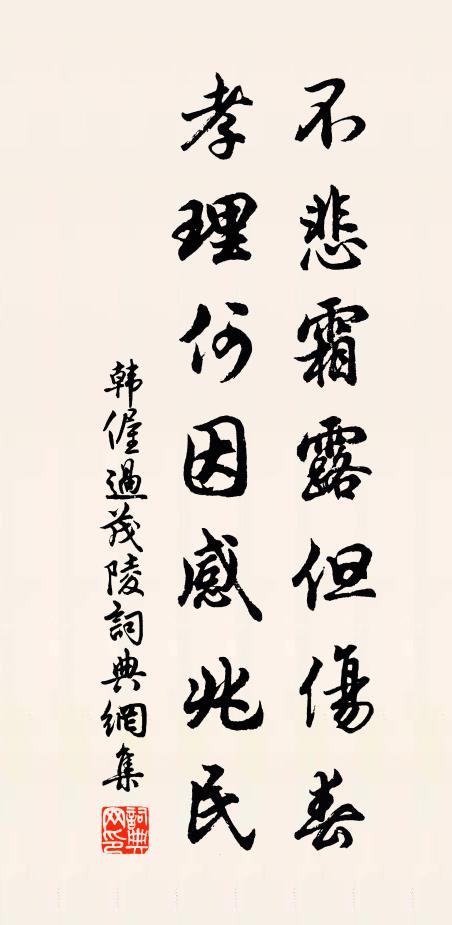 不悲霜露但傷春
孝理何因感兆民
韩偓過茂陵詞典網集
詞典网印